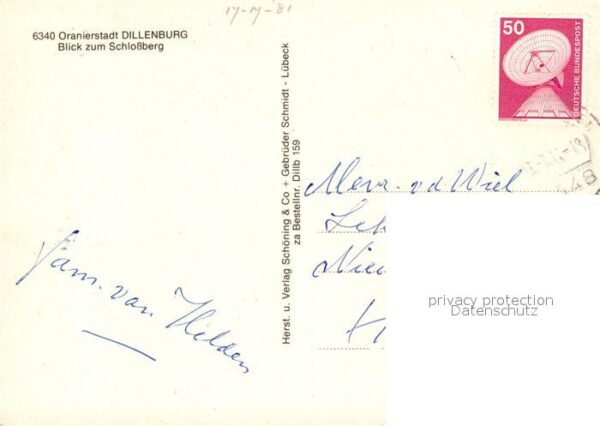 17-7-81
6340 Oranierstadt DILLENBURG
Blick zum Schloßberg
50
DEUTSCHE BUNDESPOST
Herst. u. Verlag Schöning & Co + Gebrüder Schmidt - Lübeck
za Bestellnr. Dillb 159
Mevr. v d Wiel
Fam. van Hilden
privacy protection
Datenschutz